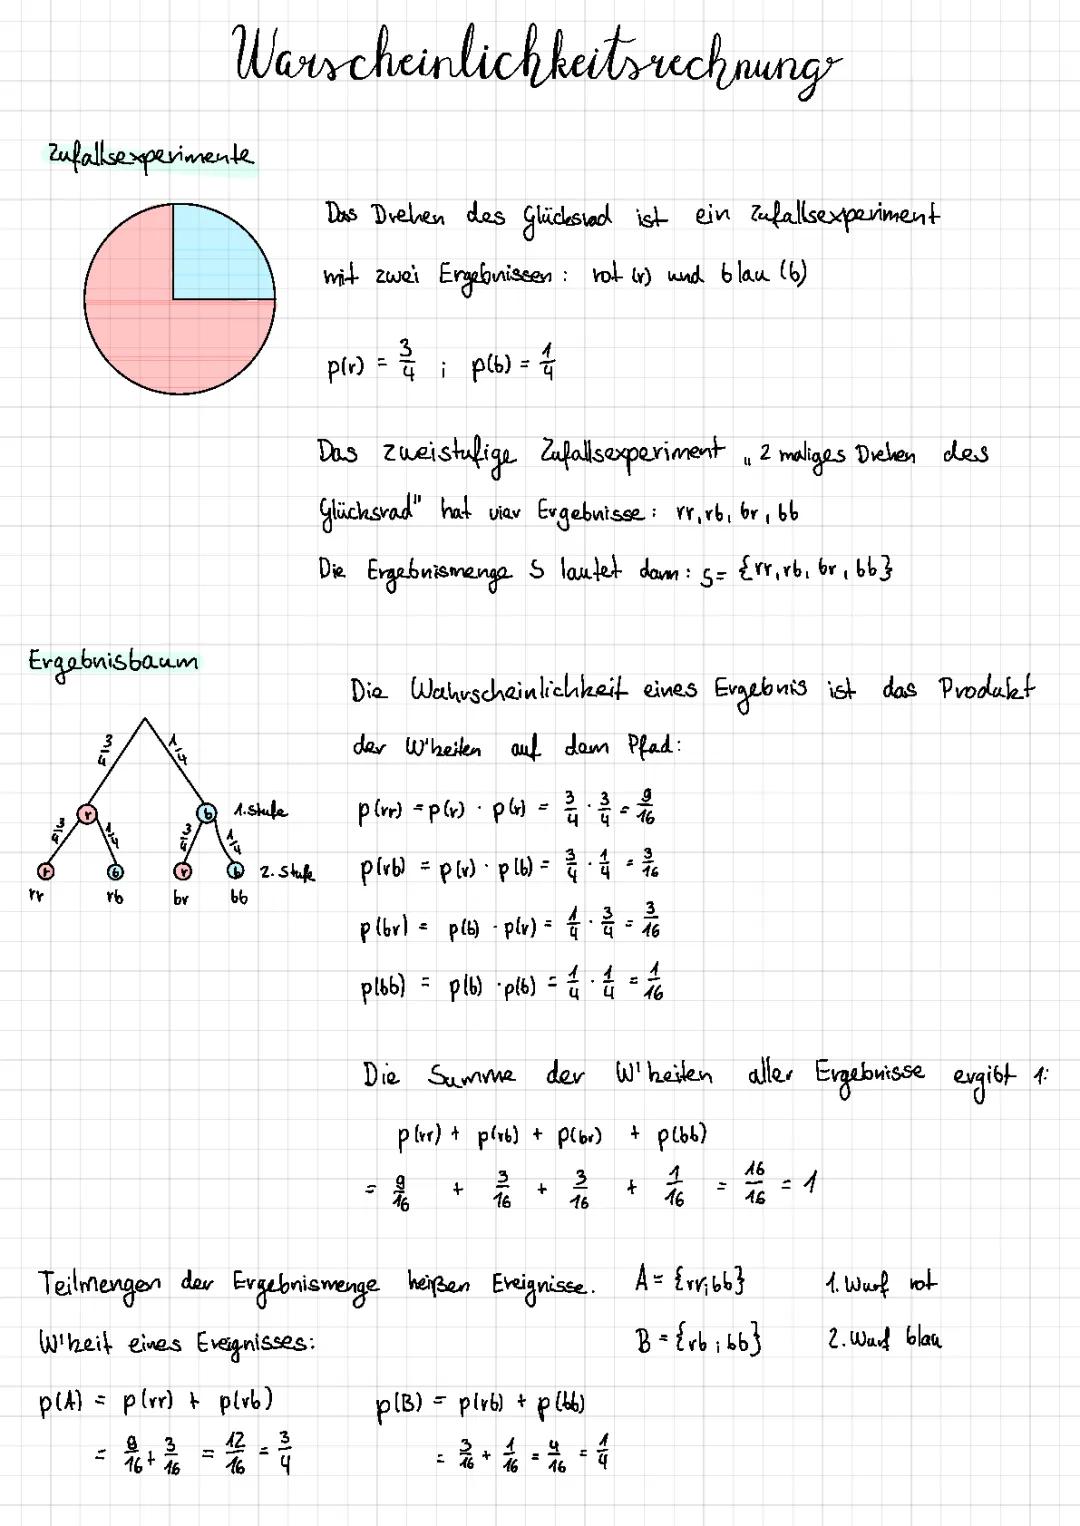 Warscheinlichkeitsrechnung
Zufallsexperimente
Das Drehen des Glücksrad ist ein Zufallsexperiment
mit zwei Ergebnissen: rot (r) und blau (b)
p(r) = 3/4 ; p(b) = 1/4
Das zweistufige Zufallsexperiment „2 maliges Drehen des
Glücksrad" hat vier Ergebnisse: rr, rb, br, bb
Die Ergebnismenge S lautet dann: S = {rr, rb, br, bb}
Ergebnisbaum
Die Wahrscheinlichkeit eines Ergebnis ist das Produkt
der W'keiten auf dem Pfad:
3/4 1/4
r b 1. Stufe
3/4 1/4 3/4 1/4
r b r b 2. Stufe
rr rb br bb
p(rr) = p(r) · p(r) = 3/4 · 3/4 = 9/16
p(rb) = p(r) · p(b) = 3/4 · 1/4 = 3/16
p(br) = p(b) · p(r) = 1/4 · 3/4 = 3/16
p(bb) = p(b) · p(b) = 1/4 · 1/4 = 1/16
Die Summe der W'keiten aller Ergebnisse ergibt 1:
p(rr) + p(rb) + p(br) + p(bb)
= 9/16 + 3/16 + 3/16 + 1/16 = 16/16 = 1
Teilmengen der Ergebnismenge heißen Ereignisse. A = {rr; bb} 1. Wurf rot
W'keit eines Ereignisses: B = {rb; bb} 2. Wurf blau
p(A) = p(rr) + p(rb) p(B) = p(rb) + p(bb)
= 9/16 + 3/16 = 12/16 = 3/4 = 3/16 + 1/16 = 4/16 = 1/4